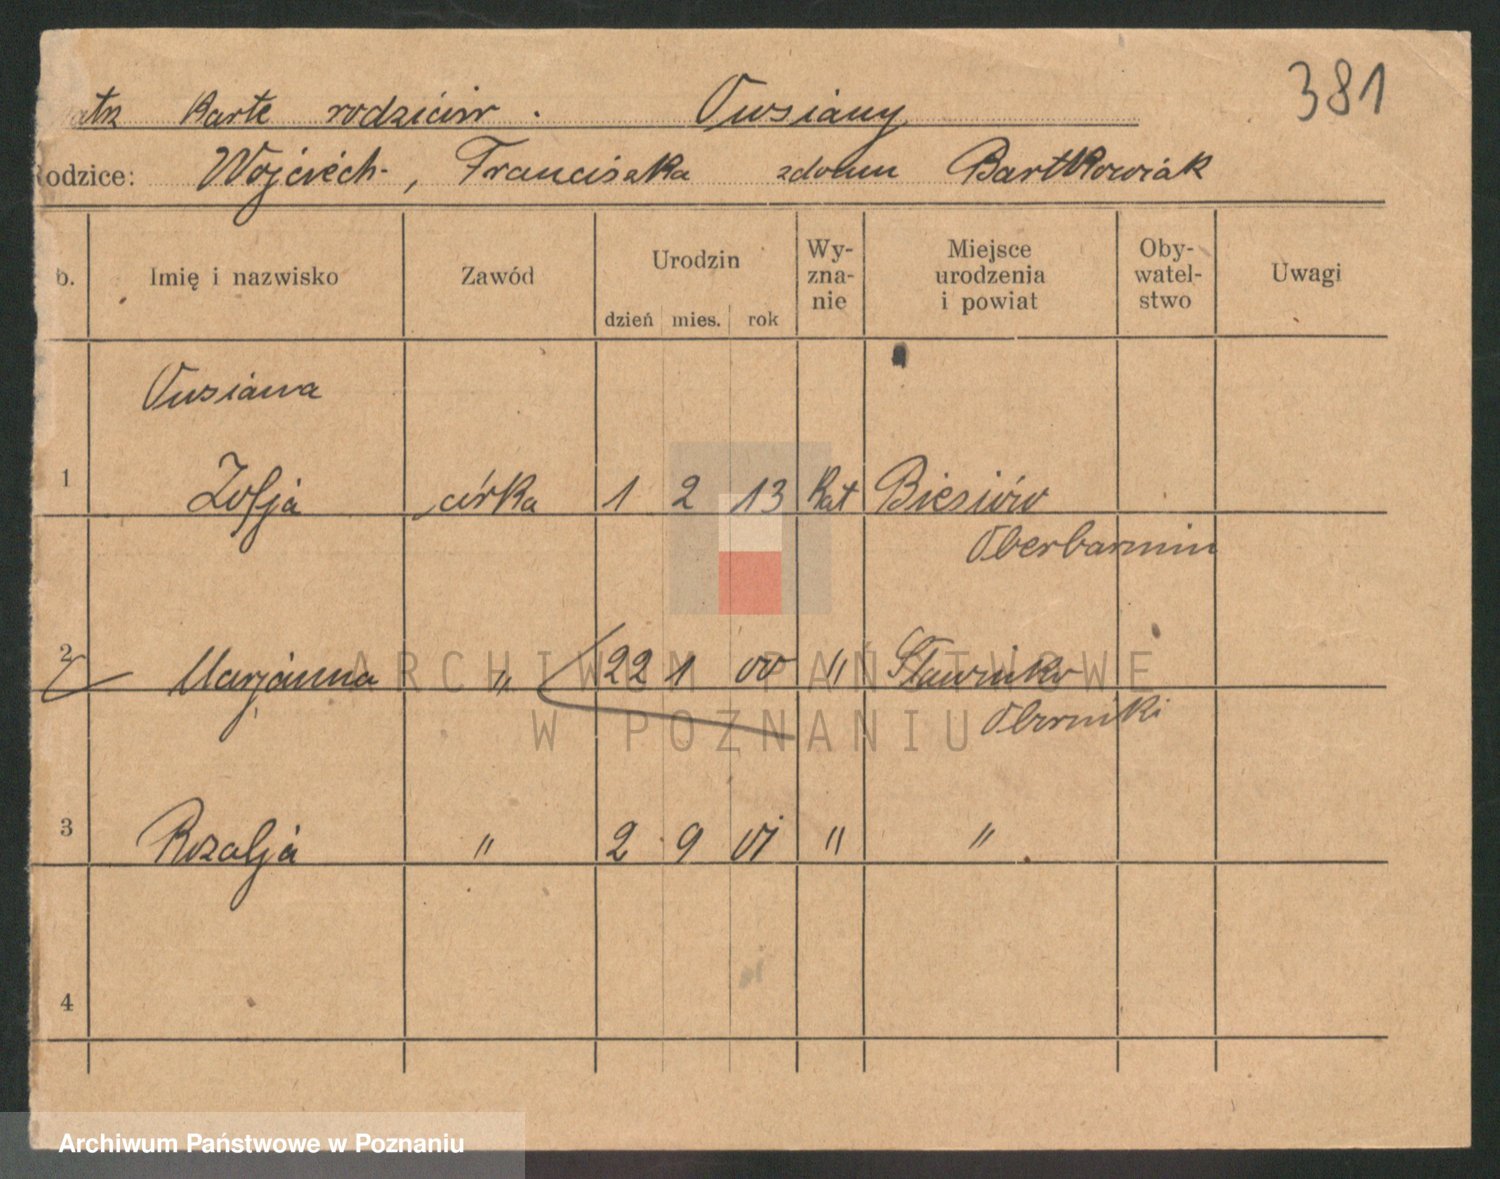 381
Kartę rodziców. Owsiany
Rodzice: Wojciech, Franciszka zdomu Bartkowiak
b. Imię i nazwisko Zawód Urodzin dzień mies. rok Wy-zna-nie Miejsce urodzenia i powiat Oby-watel-stwo Uwagi
Owsiana
1 Zofja córka 1 2 13 kat Biesiów
Oberbarnim
2 Marjanna " 22 1 00 "
Oborniki
3 Rozalja " 2 9 01 " "
4
ARCHIWUM PAŃSTWOWE
W POZNANIU
Archiwum Państwowe w Poznaniu